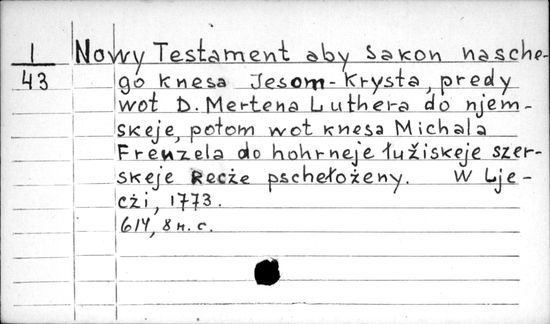 1
43
Nowy Testament aby Sakon nasche-
go knesa Jesom-Krysta, predy
wot D. Mertena Luthera do njem-
skeje, potom wot knesa Michala
Frenzela do hohrneje łužiskeje szer-
skeje Recże pschełożeny. W Lje-
cżi, 1773.
614, 8 n. c.